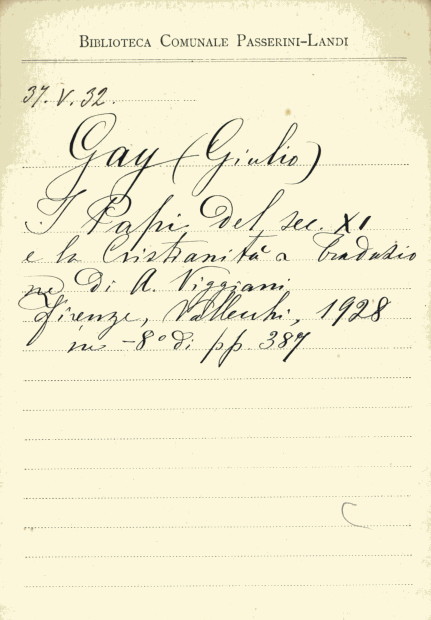 BIBLIOTECA COMUNALE PASSERINI-LANDI
37. V. 32.
Gay (Giulio)
I Papi del sec. XI
e la Cristianità Traduzio
ne di A. Viggiani
Firenze, Vallecchi, 1928
in -8° di pp. 387